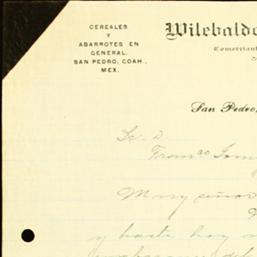 CEREALES
Y
ABARROTES EN
GENERAL.
SAN PEDRO, COAH.,
MEX.
Wilebaldo
Comerciant
San Pedro,
Sr. D.
Franco Gom
Muy señor
y hasta hoy